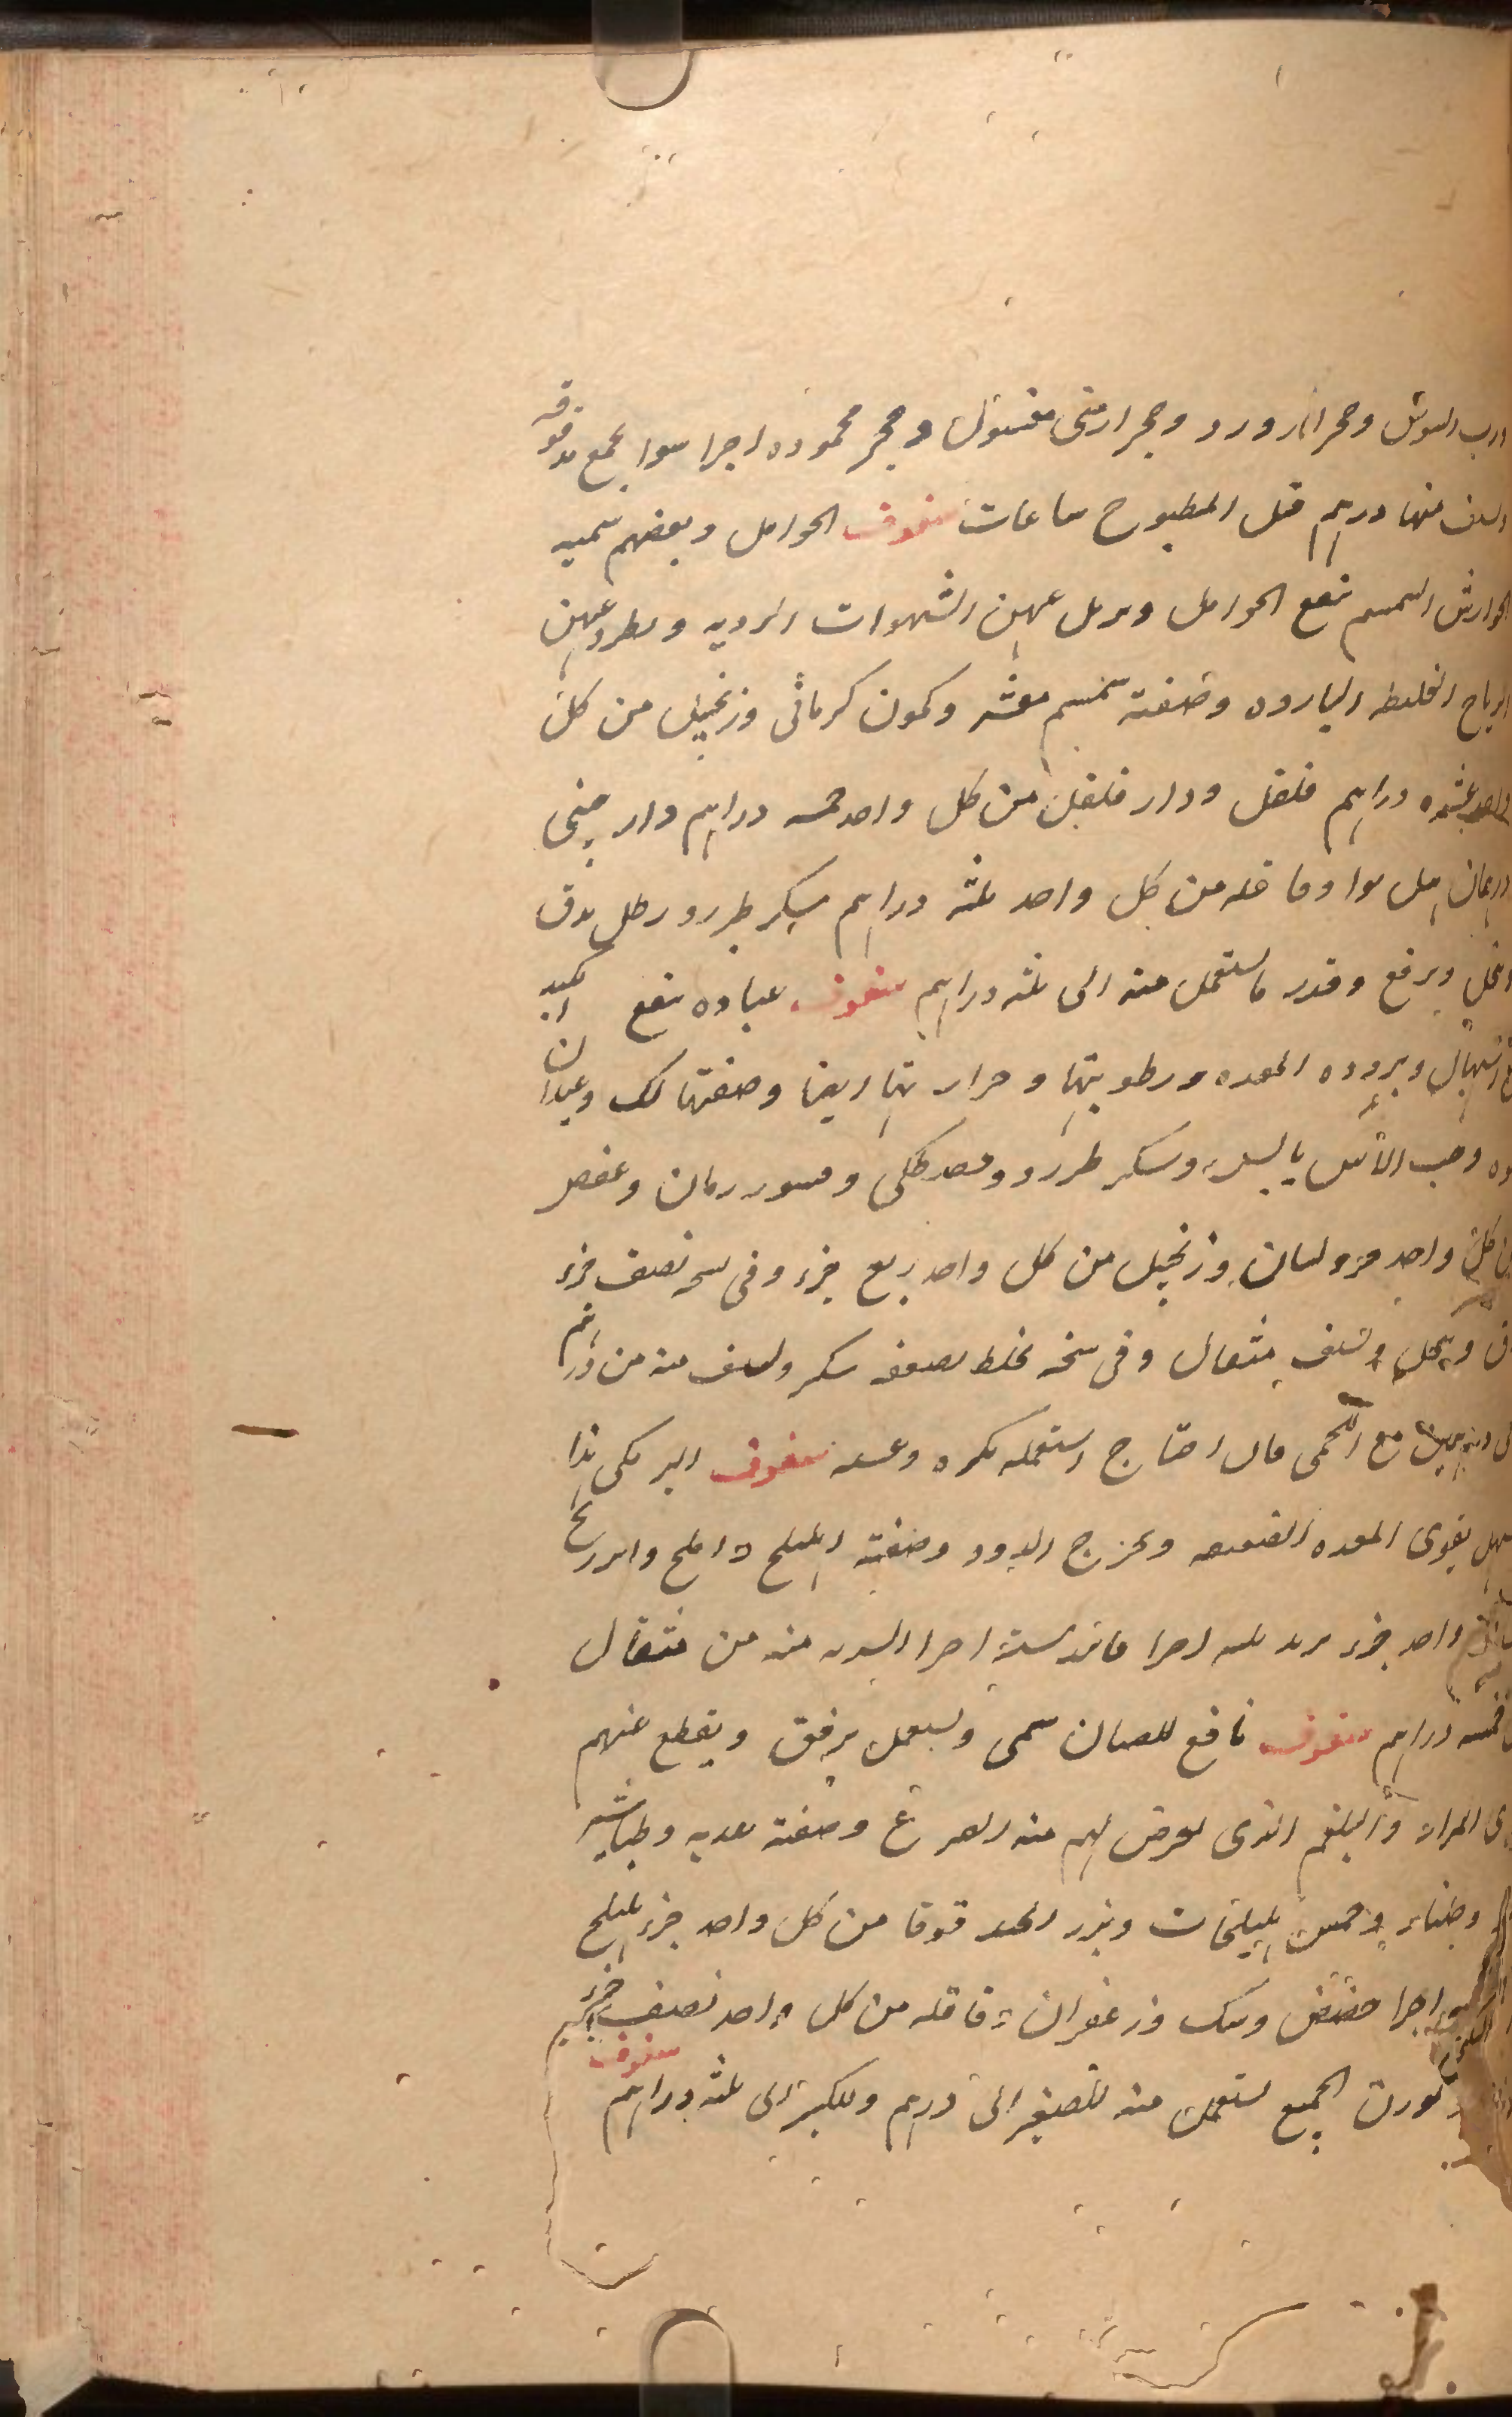 ورب السوس وحجر اللازورد وحجر ارمنى مغسول وحجر محموده اجزا سوا يجمع مدقوقه
منها درهم قبل المطبوخ ساعات سفوف الحوامل وبعضهم يسميه
جوارش السمسم ينفع الحوامل ويزيل عنهن الشهوات الرديه ويطرد عنهن
الرياح الغليظه البارده وصفته سمسم مقشر وكمون كرمانى وزنجبيل من كل
واحد عشره دراهم فلفل ودار فلفل من كل واحد خمسه دراهم دار صينى
درهمان هيل بوا وقاقله من كل واحد ثلثه دراهم سكر طبرزد رطل يدق
وينخل ويرفع وقدر ما يستعمل منه الى ثلثه دراهم سفوف عباده ينفع الكبد
الاسهال وبروده المعده ورطوبتها وحرارتها ايضا وصفتها لك وعيدان
وحب الآس يابس وسكر طبرزد ومصطكى وقشور رمان وعفص
من كل واحد جزو لبان وزنجبيل من كل واحد ربع جزء وفى نسخه نصف جزء
يدق وينخل ويستف مثقال وفى نسخه يخلط بضعفه سكر ويستف منه من درهم
الى درهمين مع الحمى فان احتاج استعمله بكره وعشيه سفوف البرمكى هذا
يسهل يقوى المعده الضعيفه ويخرج الدود وصفته اهليلج واملج وابرنج
من كل واحد جزء تربد ثلثه اجزا فانيد سته اجزا الشربه منه من مثقال
الى خمسه دراهم سفوف نافع للصبيان يسمى ويستعمل برفق ويقطع عنهم
المرار والبلغم الذى يعرض لهم منه الصرع وصفته وطباشير
وخمس هليلجات وبزر الحندقوقا من كل واحد جزء هليلج
اجزا حضض وسك وزعفران وقاقله من كل واحد نصف جزء
بوزن الجميع يستعمل منه للصغير الى درهم وللكبير الى ثلثه دراهم سفوف